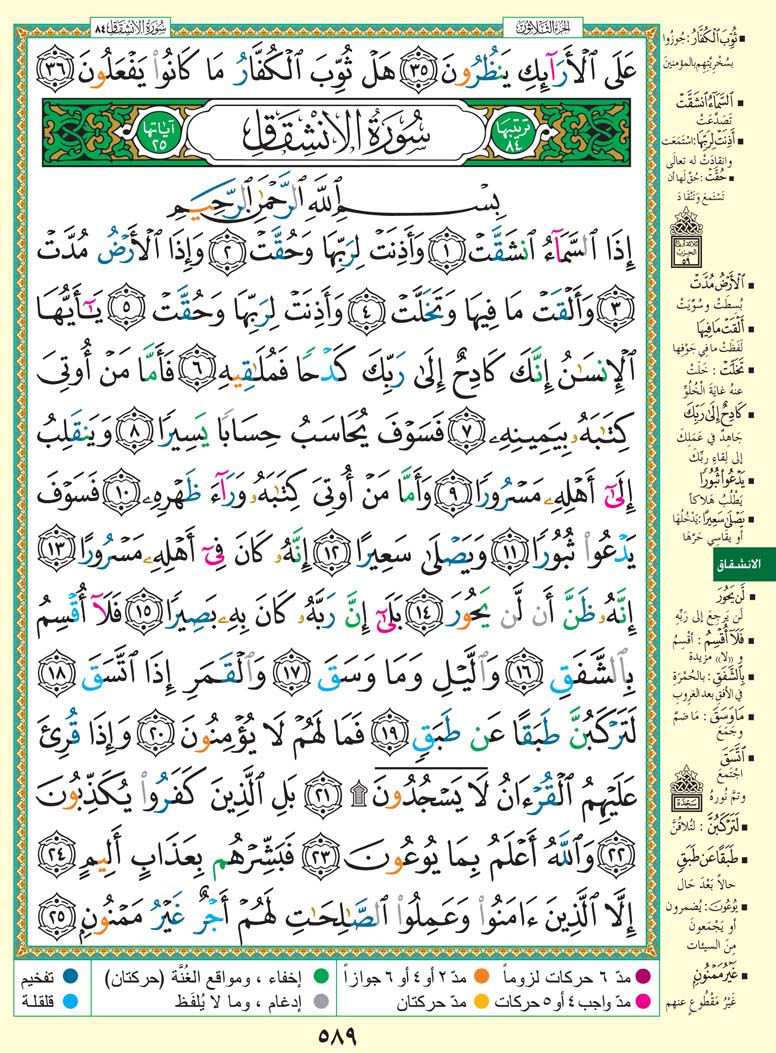 سُورَةُ الانشِقَاق ٨٤
الجُزءُ الثَّلَاثُون
عَلَى ٱلْأَرَآئِكِ يَنظُرُونَ ٣٥ هَلْ ثُوِّبَ ٱلْكُفَّارُ مَا كَانُوا۟ يَفْعَلُونَ ٣٦
ترتيبها ٨٤
سُورَةُ الانشِقَاق
آياتها ٢٥
بِسْمِ ٱللَّهِ ٱلرَّحْمَٰنِ ٱلرَّحِيمِ
إِذَا ٱلسَّمَآءُ ٱنشَقَّتْ ١ وَأَذِنَتْ لِرَبِّهَا وَحُقَّتْ ٢ وَإِذَا ٱلْأَرْضُ مُدَّتْ
٣ وَأَلْقَتْ مَا فِيهَا وَتَخَلَّتْ ٤ وَأَذِنَتْ لِرَبِّهَا وَحُقَّتْ ٥ يَـٰٓأَيُّهَا
ٱلْإِنسَـٰنُ إِنَّكَ كَادِحٌ إِلَىٰ رَبِّكَ كَدْحًا فَمُلَـٰقِيهِ ٦ فَأَمَّا مَنْ أُوتِىَ
كِتَـٰبَهُۥ بِيَمِينِهِۦ ٧ فَسَوْفَ يُحَاسَبُ حِسَابًا يَسِيرًا ٨ وَيَنقَلِبُ
إِلَىٰٓ أَهْلِهِۦ مَسْرُورًا ٩ وَأَمَّا مَنْ أُوتِىَ كِتَـٰبَهُۥ وَرَآءَ ظَهْرِهِۦ ١٠ فَسَوْفَ
يَدْعُوا۟ ثُبُورًا ١١ وَيَصْلَىٰ سَعِيرًا ١٢ إِنَّهُۥ كَانَ فِىٓ أَهْلِهِۦ مَسْرُورًا ١٣
إِنَّهُۥ ظَنَّ أَن لَّن يَحُورَ ١٤ بَلَىٰٓ إِنَّ رَبَّهُۥ كَانَ بِهِۦ بَصِيرًا ١٥ فَلَآ أُقْسِمُ
بِٱلشَّفَقِ ١٦ وَٱلَّيْلِ وَمَا وَسَقَ ١٧ وَٱلْقَمَرِ إِذَا ٱتَّسَقَ ١٨
لَتَرْكَبُنَّ طَبَقًا عَن طَبَقٍ ١٩ فَمَا لَهُمْ لَا يُؤْمِنُونَ ٢٠ وَإِذَا قُرِئَ
عَلَيْهِمُ ٱلْقُرْءَانُ لَا يَسْجُدُونَ ۩ ٢١ بَلِ ٱلَّذِينَ كَفَرُوا۟ يُكَذِّبُونَ
٢٢ وَٱللَّهُ أَعْلَمُ بِمَا يُوعُونَ ٢٣ فَبَشِّرْهُم بِعَذَابٍ أَلِيمٍ ٢٤
إِلَّا ٱلَّذِينَ ءَامَنُوا۟ وَعَمِلُوا۟ ٱلصَّـٰلِحَـٰتِ لَهُمْ أَجْرٌ غَيْرُ مَمْنُونٍۭ ٢٥
ثُوِّبَ ٱلْكُفَّارُ: جُوزُوا
بسُخْريَّتِهم بالمؤمنين
ٱلسَّمَآءُ ٱنشَقَّتْ
تَصَدَّعَتْ
أَذِنَتْ لِرَبِّهَا: اسْتَمَعَت
وانقادَتْ له تعالى
حُقَّتْ: حُقَّ لَها أن
تَسْتَمعَ وَتَنْقَادَ
ثلاثة أرباع
الحزب
٥٩
ٱلْأَرْضُ مُدَّتْ
بُسطَتْ وسُوّيَتْ
أَلْقَتْ مَا فِيهَا
لفَظَتْ ما في جَوْفها
تَخَلَّتْ: خَلَتْ
عنه غايَة الخُلُوِّ
كَادِحٌ إِلَىٰ رَبِّكَ
جَاهِدٌ في عَمَلِكَ
إلى لِقاءِ ربِّكَ
يَدْعُوا۟ ثُبُورًا
يَطلُبُ هَلاكاً
يَصْلَىٰ سَعِيرًا: يَدْخُلُها
أو يقَاسي حَرّها
الانشقاق
لَّن يَحُورَ
لَن يَرجِعَ إلى رَبِّهِ
فَلَآ أُقْسِمُ: أقْسِمُ
و «لا» مزيدة
بِٱلشَّفَقِ: بالحُمْرَة
في الأفق بعد الغروب
مَا وَسَقَ: مَا ضمَّ
وجَمَعَ
ٱتَّسَقَ
اجْتمَعَ
وتمّ نُورهُ
سجدة
لَتَرْكَبُنَّ: لتُلاقُنَّ
طَبَقًا عَن طَبَقٍ
حالاً بَعْدَ حَال
يُوعُونَ: يُضمرون
أو يَجْمَعونَ
منَ السيئات
غَيْرُ مَمْنُونٍ
غَيْرُ مَقْطُوعٍ عنهم
مدّ ٦ حركات لزوماً
مدّ ٢ أو ٤ أو ٦ جوازاً
إخفاء ، ومواقع الغُنَّة (حركتان)
تفخيم
مدّ واجب ٤ أو ٥ حركات
مدّ حركتان
إدغام ، وما لا يُلفَظ
قلقلة
٥٨٩